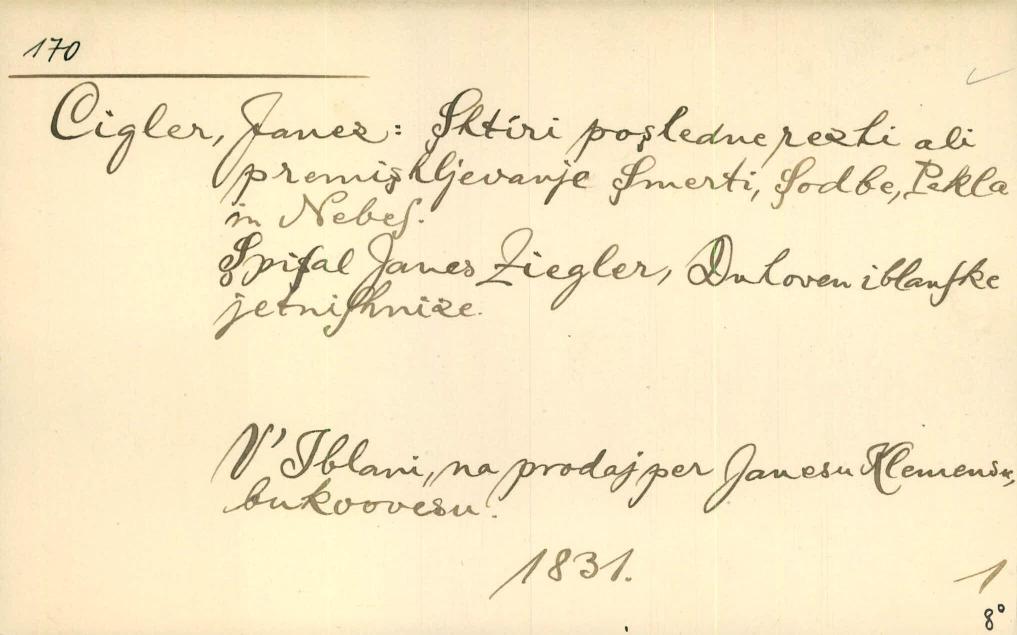 170
Cigler, Janez: Shtiri poşledne rezhi ali
premişhljevanje Smerti, Sodbe, Pekla
in Nebeſ.
Spiſal Janes Ziegler, Duhoven iblanſke
jetniſhnize.
V' Iblani, na prodaj per Janesu Klemensu,
bukvovesu.
1831.
1
8°